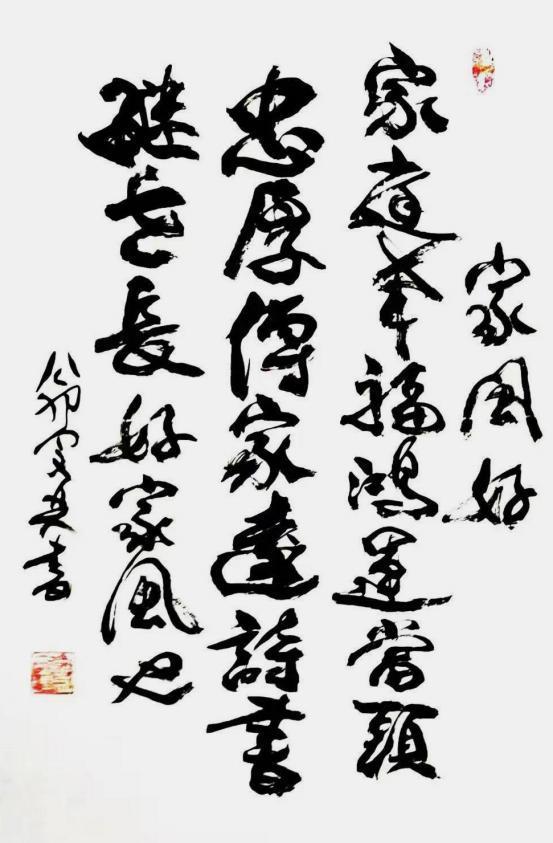 家風好
家庭幸福鴻運當頭
忠厚傳家遠詩書
繼世長好家風也
癸卯 書